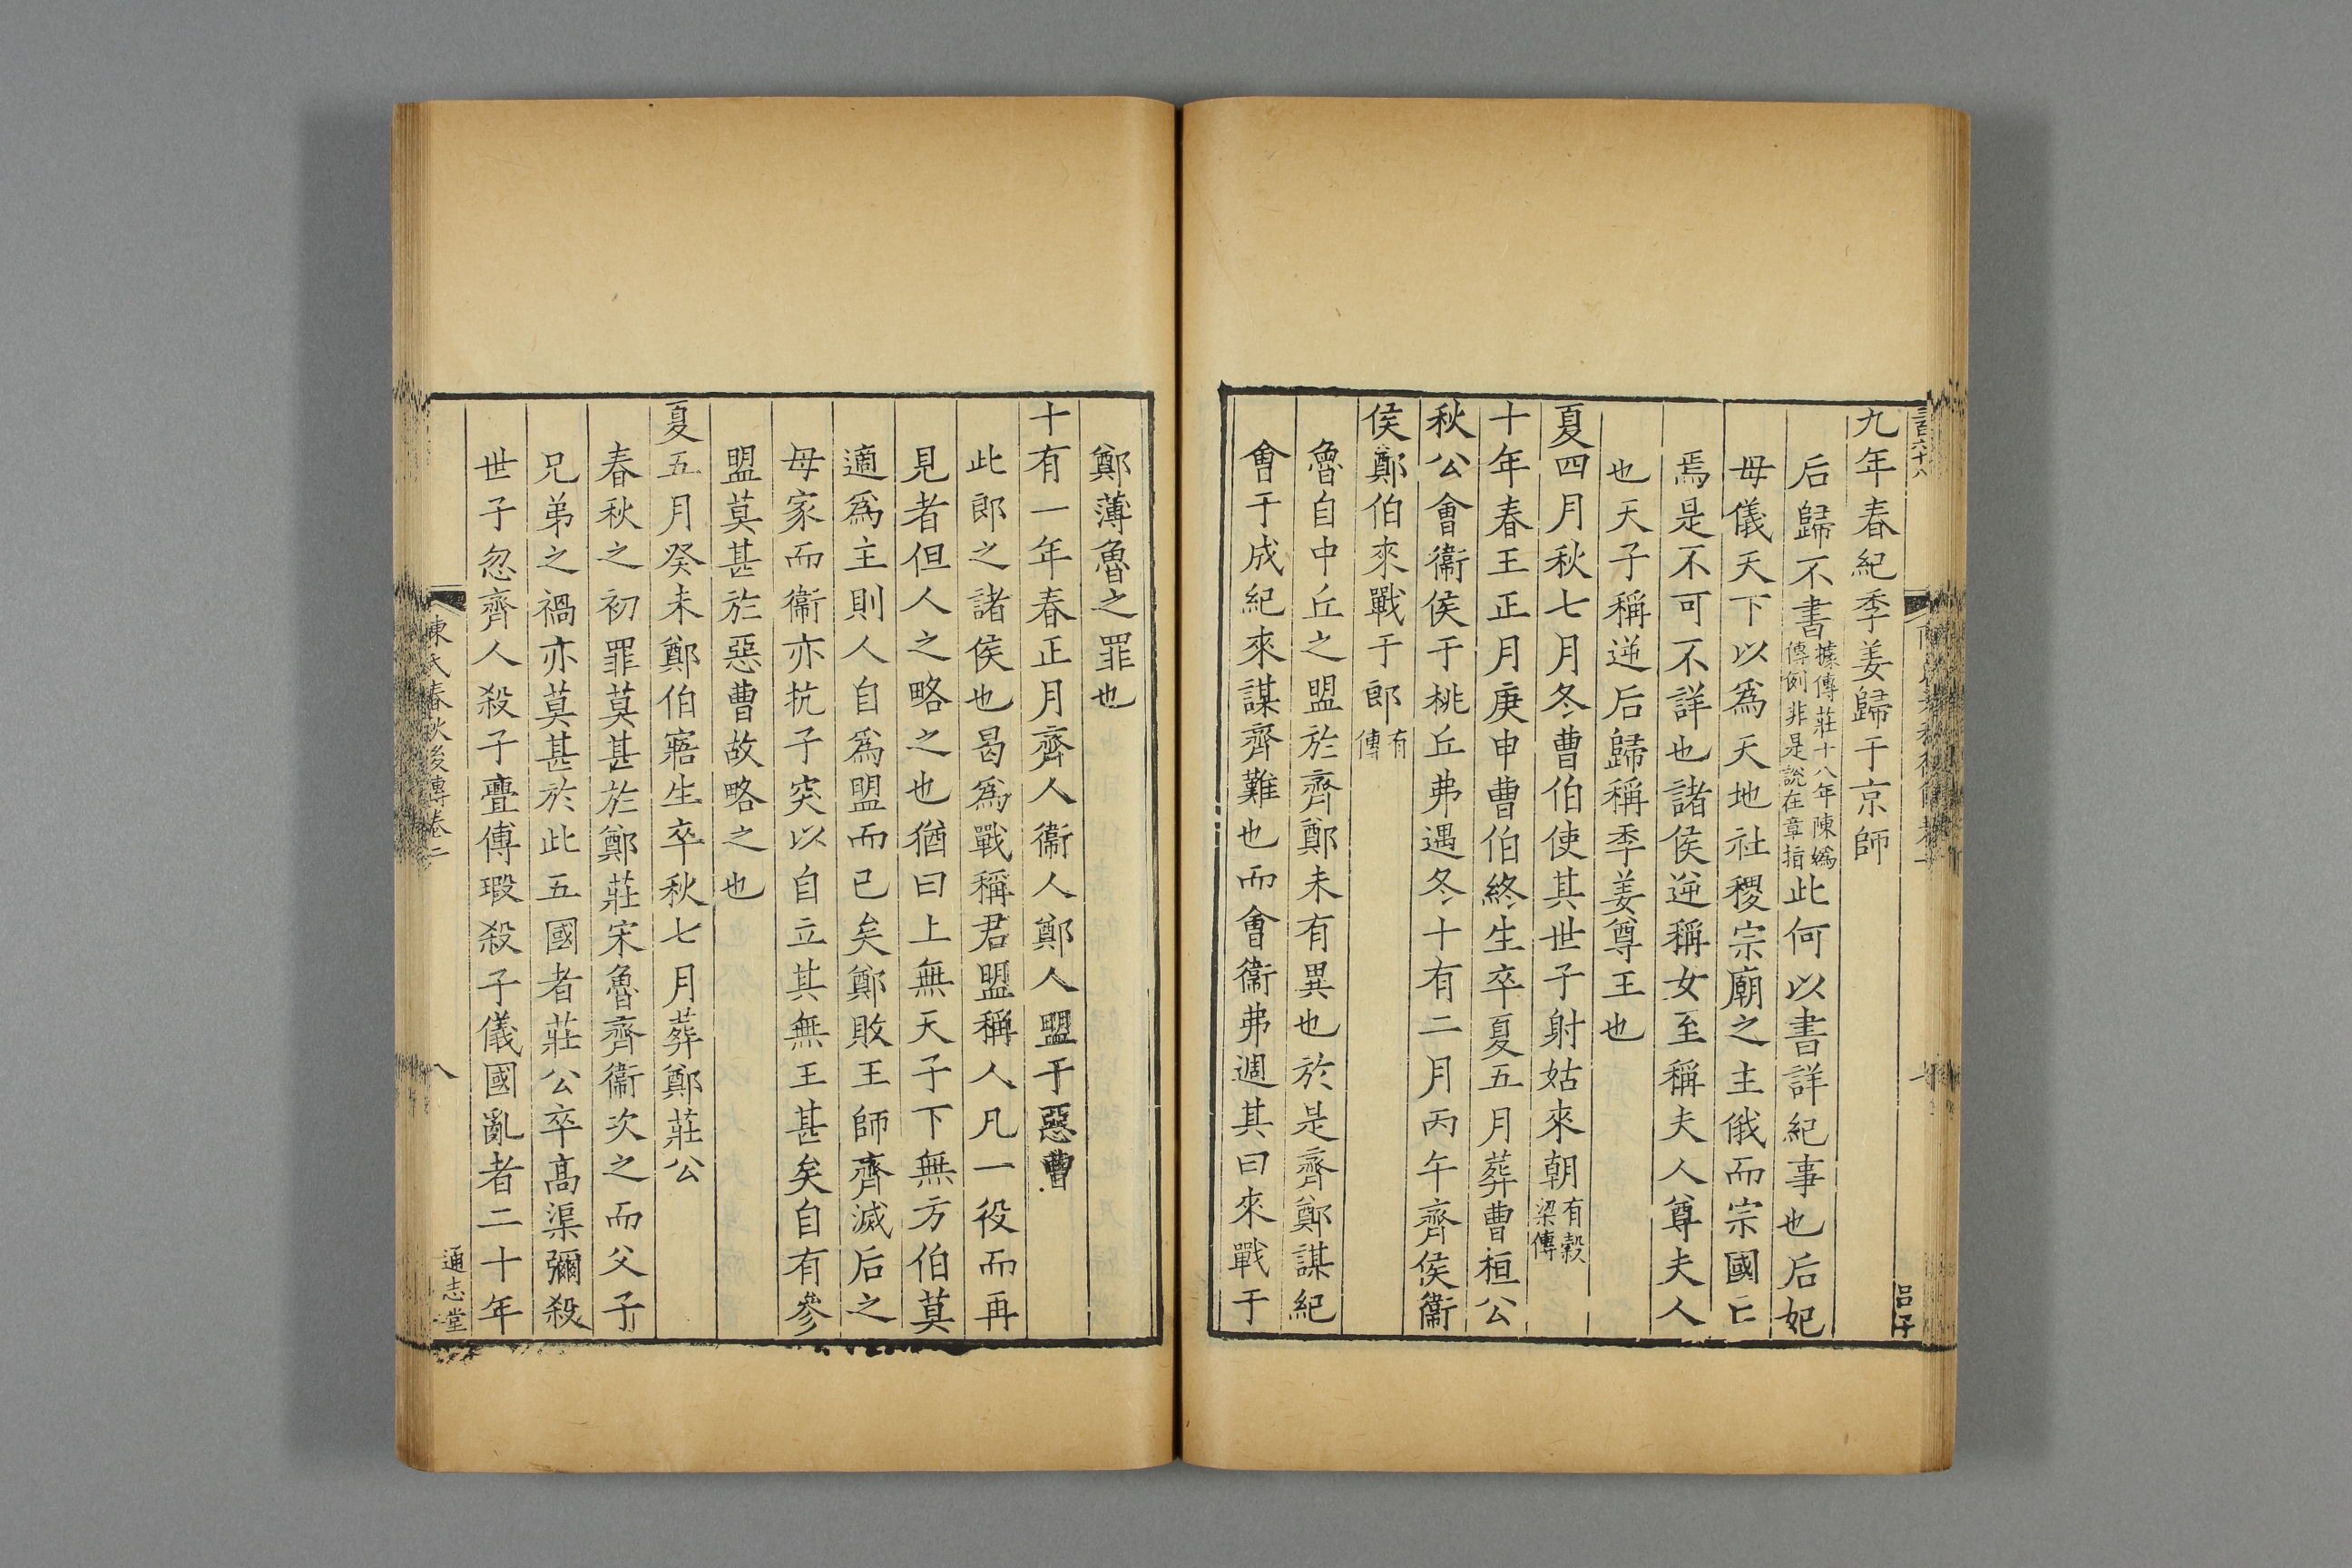 九年春紀季姜歸于京師
后歸不書據傳莊十八年陳嬀傳例非是說在章指此何以書詳紀事也后妃
母儀天下以爲天地社稷宗廟之主俄而宗國亡
焉是不可不詳也諸侯逆稱女至稱夫人尊夫人
也天子稱逆后歸稱季姜尊王也
夏四月秋七月冬曹伯使其世子射姑來朝有穀梁傳
十年春王正月庚申曹伯終生卒夏五月葬曹桓公
秋公會衞侯于桃丘弗遇冬十有二月丙午齊侯衞
侯鄭伯來戰于郎有傳
魯自中丘之盟於齊鄭未有異也於是齊鄭謀紀
會于成紀來謀齊難也而會衞弗遇其曰來戰于
鄭薄魯之罪也
十有一年春正月齊人衞人鄭人盟于惡曹
此郎之諸侯也曷爲戰稱君盟稱人凡一役而再
見者但人之略之也猶曰上無天子下無方伯莫
適爲主則人自爲盟而已矣鄭敗王師齊滅后之
母家而衞亦抗子突以自立其無王甚矣自有參
盟莫甚於惡曹故略之也
夏五月癸未鄭伯寤生卒秋七月葬鄭莊公
春秋之初罪莫甚於鄭莊宋魯齊衞次之而父子
兄弟之禍亦莫甚於此五國者莊公卒高渠彌殺
世子忽齊人殺子亹傅瑕殺子儀國亂者二十年
陳氏春秋後傳卷二
八
通志堂